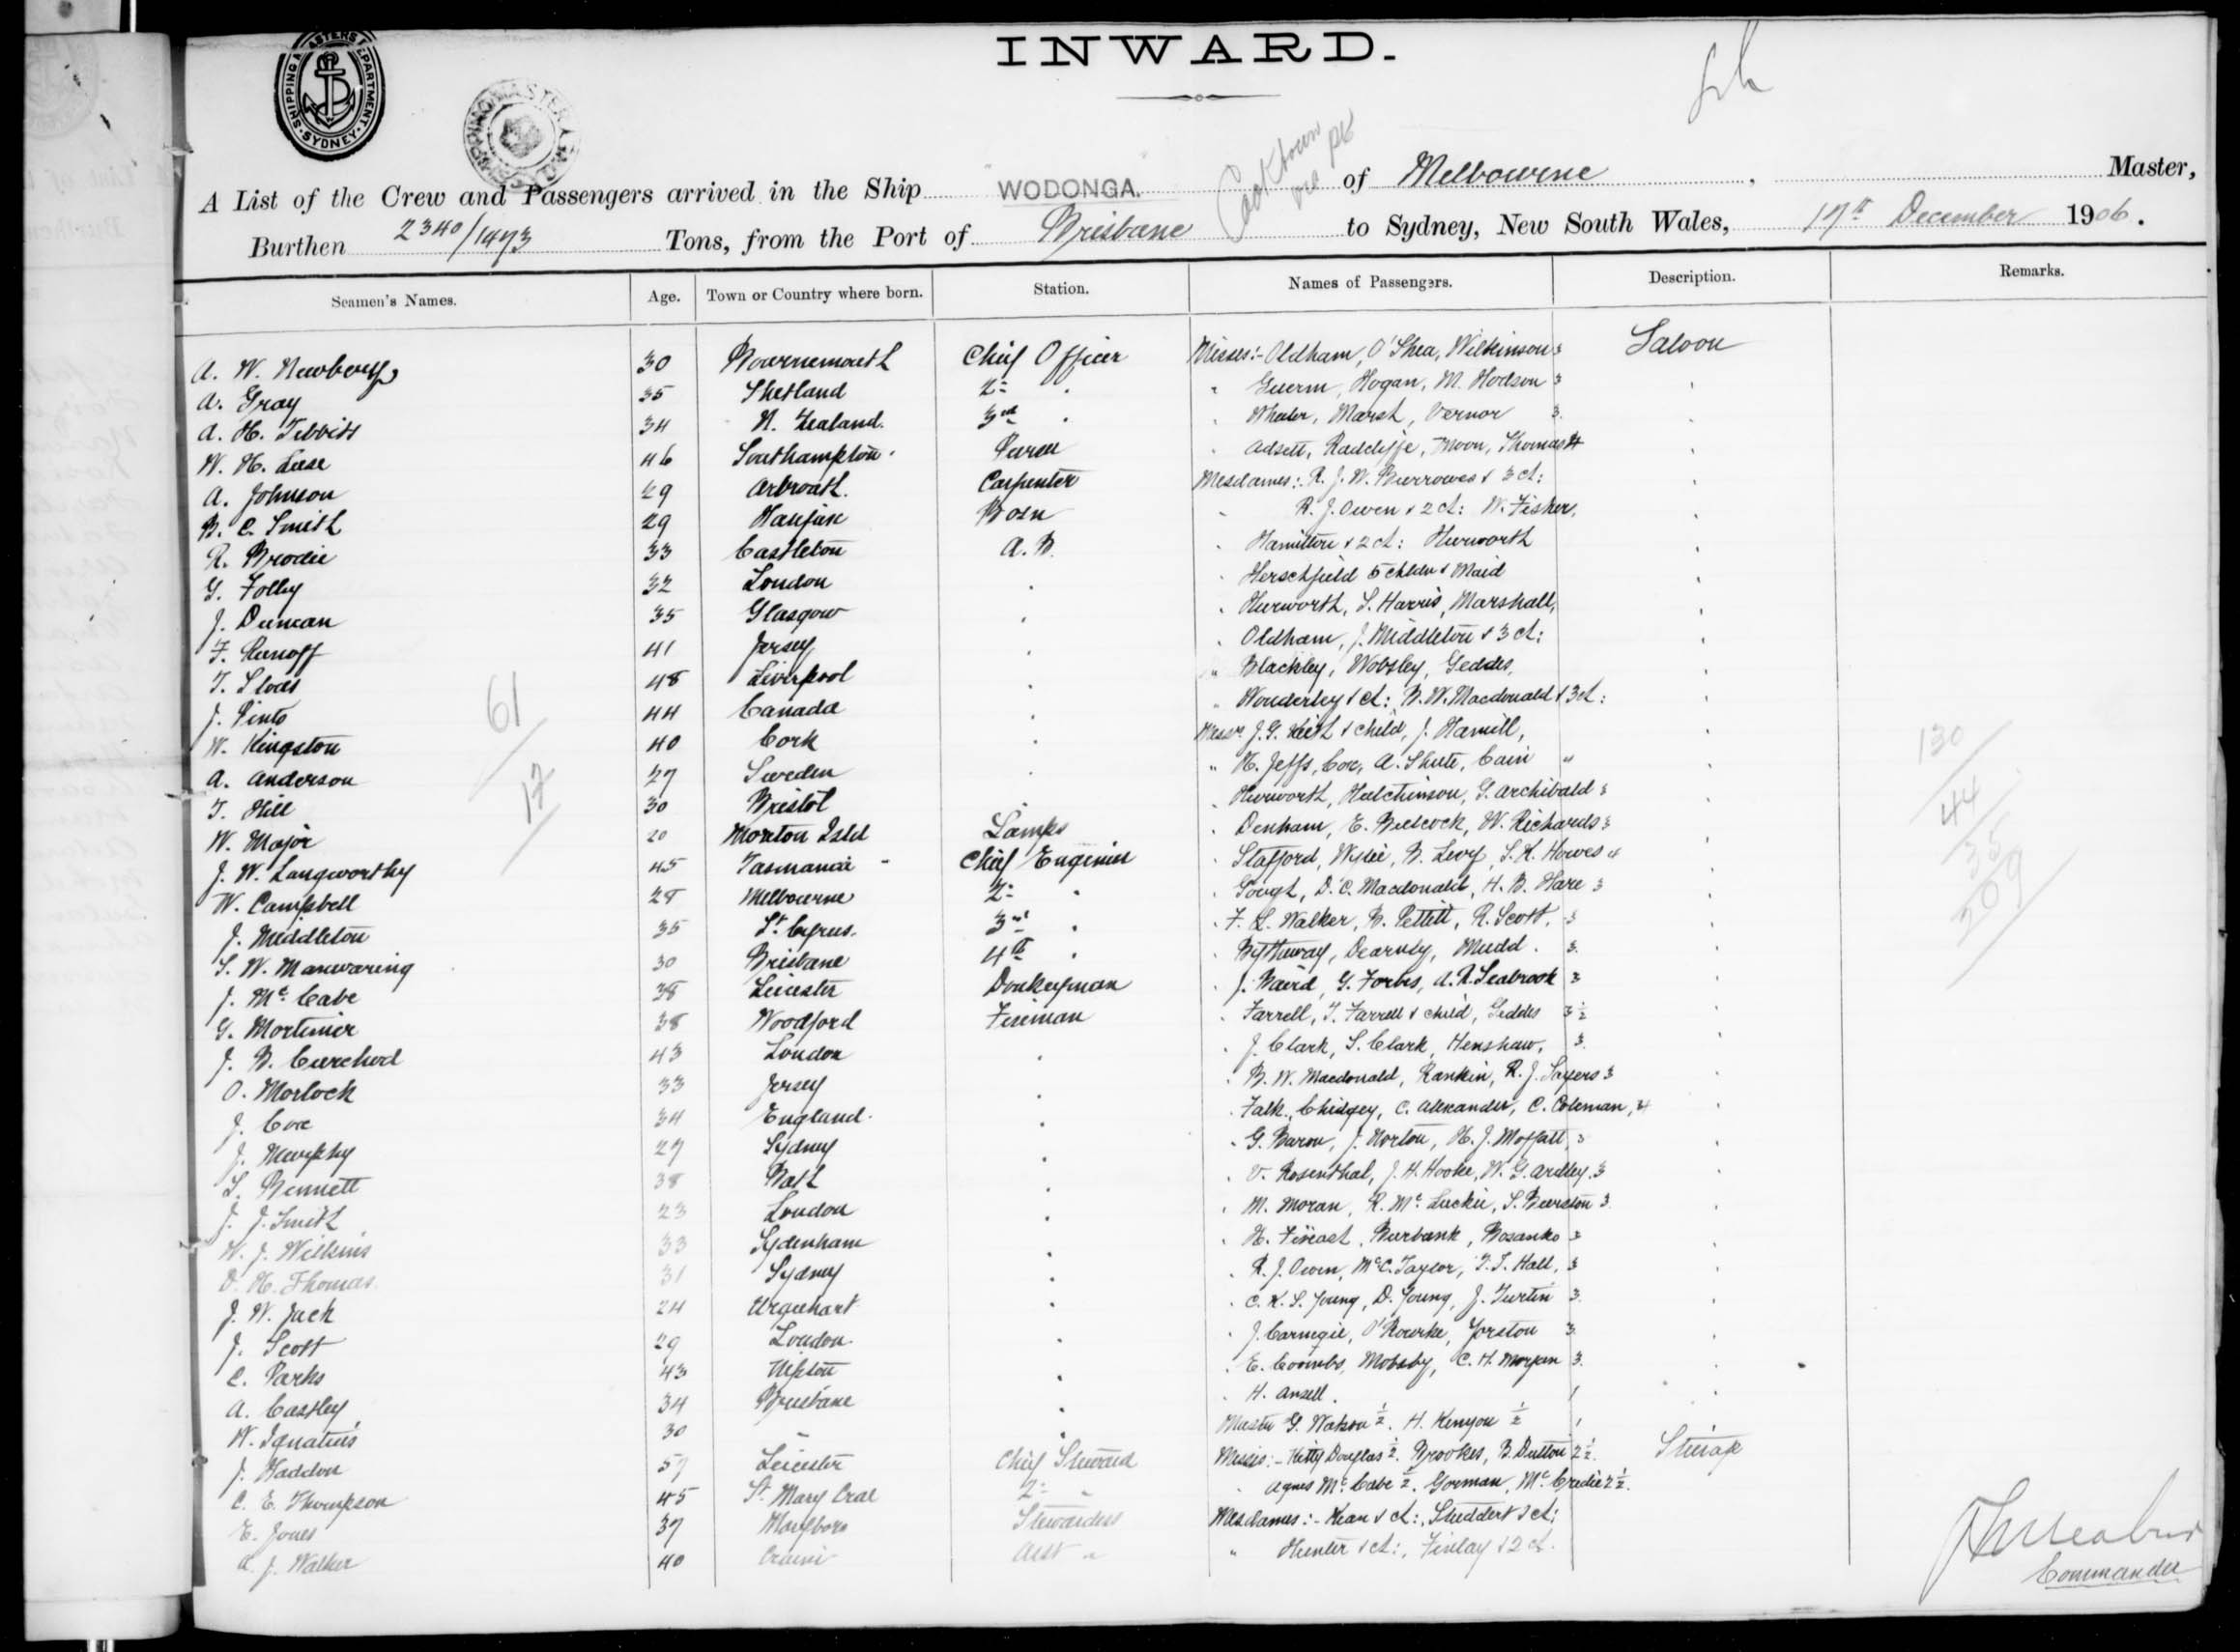 INWARD.
SHIPPING MASTERS DEPARTMENT SYDNEY
Cooktown
via pts
A List of the Crew and Passengers arrived in the Ship WODONGA. of Melbourne, Master,
Burthen 2340/1473 Tons, from the Port of Brisbane to Sydney, New South Wales, 17th December 1906.
Seamen's Names. Age. Town or Country where born. Station. Names of Passengers. Description. Remarks.
A. W. Newbery 30 Bournemouth Chief Officer Misses:- Oldham, O'Shea, Wilkinson 3 Saloon
A. Gray 35 Shetland 2 " " Guerin, Hogan, M. Hodson 3
A. H. Tebbitt 34 N. Zealand. 3rd " " Wheeler, Marsh, Vernor 3.
W. H. Luse 46 Southampton Purser " Adsett, Radcliffe, Moon, Thomas 4
A. Johnson 29 Arbroath. Carpenter Mesdames:- R. J. W. Burrowes & 3 ch:
B. C. Smith 29 Halifax Bosn " R. J. Owen & 2 ch: W. Fisher,
R. Brodie 33 Castleton A. B. " Hamilton & 2 ch: Hurworth
G. Folley 32 London " " Herschfield 5 chldn & Maid
J. Duncan 35 Glasgow " " Hurworth, S. Harris, Marshall,
F. Renoff 41 Jersey " " Oldham, J. Middleton & 3 ch:
T. Sloas 48 Liverpool " " Blackley, Wobsley, Geddes,
J. Pinto 44 Canada " " Wonderley & ch: B. W. Macdonald & 3 ch:
W. Kingston 40 Cork " Messrs J. G. Keith & child, J. Hamill,
A. Anderson 27 Sweden " " H. Jeffs, Cox, A. Shute, Cain "
T. Hill 30 Bristol " " Hurworth, Hutchinson, G. Archibald 3
W. Major 20 Moreton Isld Lamps " Denham, E. Bulcock, W. Richards 3
J. W. Langworthy 45 Tasmania Chief Engineer " Stafford, Wylie, B. Levy, S. H. Howes 4
W. Campbell 28 Melbourne 2 " " Gough, D. C. Macdonald, H. B. Hare 3
J. Middleton 35 St. Cyrus. 3rd " " F. L. Walker, B. Pettitt, R. Scott, 3
S. W. Manwaring 30 Brisbane 4th " " Bythaway, Dearnly, Mudd. 3.
J. McCabe 38 Leicester Donkeyman " J. Baird, G. Forbes, A. R. Seabrook 3
G. Mortimer 38 Woodford Fireman " Farrell, T. Farrell & child, Geddes 3½
J. B. Curchod 43 London " " J. Clark, S. Clark, Henshaw, 3.
O. Morlock 33 Jersey " " B. W. Macdonald, Rankin, R. J. Sayers 3
J. Cox 34 England. " " Falk, Chidgey, C. Alexander, C. Coleman, 4
J. Murphy 27 Sydney " " G. Baron, J. Norton, H. J. Moffatt, 3
S. Bennett 38 Bath " " V. Rosenthal, J. H. Hooke, W. G. Ardley. 3
J. J. Smith 23 London " " M. Moran, R. McLuckie, S. Burston 3.
W. J. Wilkins 33 Sydenham " " H. Burbank, Bosanko 3
D. H. Thomas 31 Sydney " " R. J. Owen, McC. Taylor, T. T. Hall, 3
J. W. Jack 24 Urquhart " " C. K. S. Young, D. Young, J. Turtin 3.
J. Scott 29 London. " " J. Carnegie, O'Rourke, Yorston 3.
C. Parks 43 Tipton " " E. Coombs, Mobsby, C. H. Morgan 3.
A. Castley 34 Brisbane " " H. Ansell. 1
W. Ignatius 30 " " Master G. Watson ½. H. Kenyon ½ 1
J. Haddon 57 Leicester Chief Steward Misses:- Kitty Douglas ½. Brookes, B. Dutton 2½. Steerage
C. E. Thompson 45 St. Mary Cral 2 " " Agnes McCabe ½. Gorman, McCredie 2½.
E. Jones 37 Maryboro Stewardess Mesdames:- Kean & ch:, Studdert & ch:
A. J. Walker 40 Asst " " Hunter & ch:, Finlay & 2 ch.
61
17
130
44
35
209
Commander